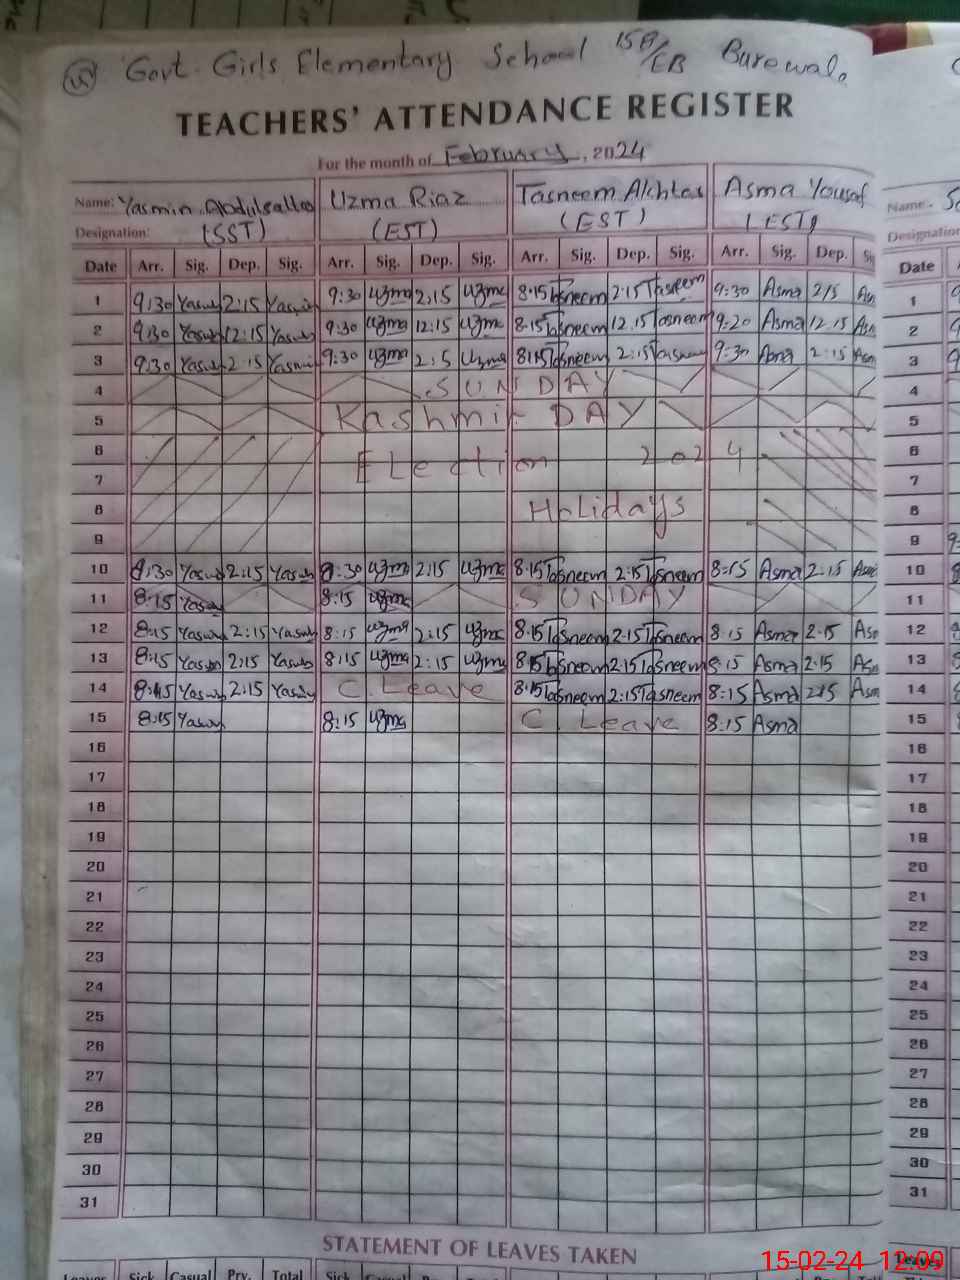 Govt. Girls Elementary School 158/EB Burewala
TEACHERS' ATTENDANCE REGISTER
For the month of February, 2024
Name: Uzma Riaz Tasneem Akhtar Asma Yousaf Name.
Designation: (SST) (EST) (EST) (EST) Designation
Date Arr. Sig. Dep. Sig. Arr. Sig. Dep. Sig. Arr. Sig. Dep. Sig. Arr. Sig. Dep. Date
1 9:30 Yasmin 2:15 Yasmin 9:30 Uzma 2:15 Uzma 8:15 Tasneem 2:15 Tasneem 9:30 Asma 215 Asm 1
2 9:30 Yasmin 12:15 Yasmin 9:30 Uzma 12:15 Uzma 8:15 Tasneem 12.15 Tasneem 9:20 Asma 12.15 Asm 2
3 9:30 Yasmin 2:15 Yasmin 9:30 Uzma 2:5 Uzma 8:15 Tasneem 2:15 Tasneem 9:30 Asma 2:15 Asm 3
4 SUNDAY 4
5 Kashmir DAY 5
6 6
7 Election 2024 7
8 Holidays 8
9 9
10 8:30 Yasmin 2:15 Yasmin 8:30 Uzma 2:15 Uzma 8:15 Tasneem 2:15 Tasneem 8:15 Asma 2:15 Asma 10
11 8:15 Yasmin 8:15 Uzma SUNDAY 11
12 8:15 Yasmin 2:15 Yasmin 8:15 Uzma 2:15 Uzma 8:15 Tasneem 2:15 Tasneem 8:15 Asma 2:15 Asm 12
13 8:15 Yasmin 2:15 Yasmin 8:15 Uzma 2:15 Uzma 8:15 Tasneem 2:15 Tasneem 8:15 Asma 2:15 Asm 13
14 8:15 Yasmin 2:15 Yasmin C. Leave 8:15 Tasneem 2:15 Tasneem 8:15 Asma 2:15 Asm 14
15 8:15 Yasmin 8:15 Uzma C Leave 8:15 Asma 15
16 16
17 17
18 18
19 19
20 20
21 21
22 22
23 23
24 24
25 25
26 26
27 27
28 28
29 29
30 30
31 31
STATEMENT OF LEAVES TAKEN
Leaves Sick Casual Prv. Total Sick Casual Prv. Total Leaves
15-02-24 12:09